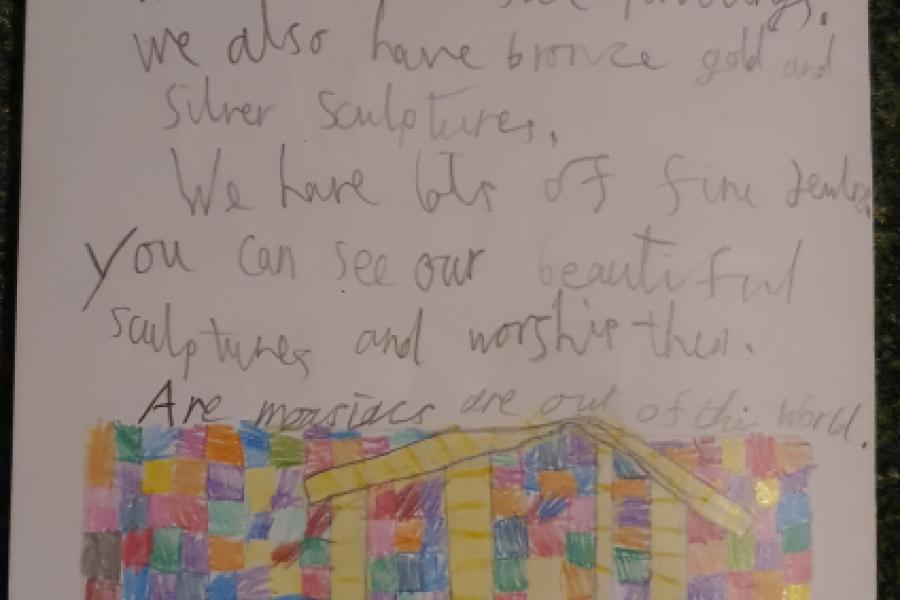 we also have bronze gold and
silver sculptures.
We have lots of fine
you can see our beautiful
sculptures and worship them.
Are mosiacs are out of this world.